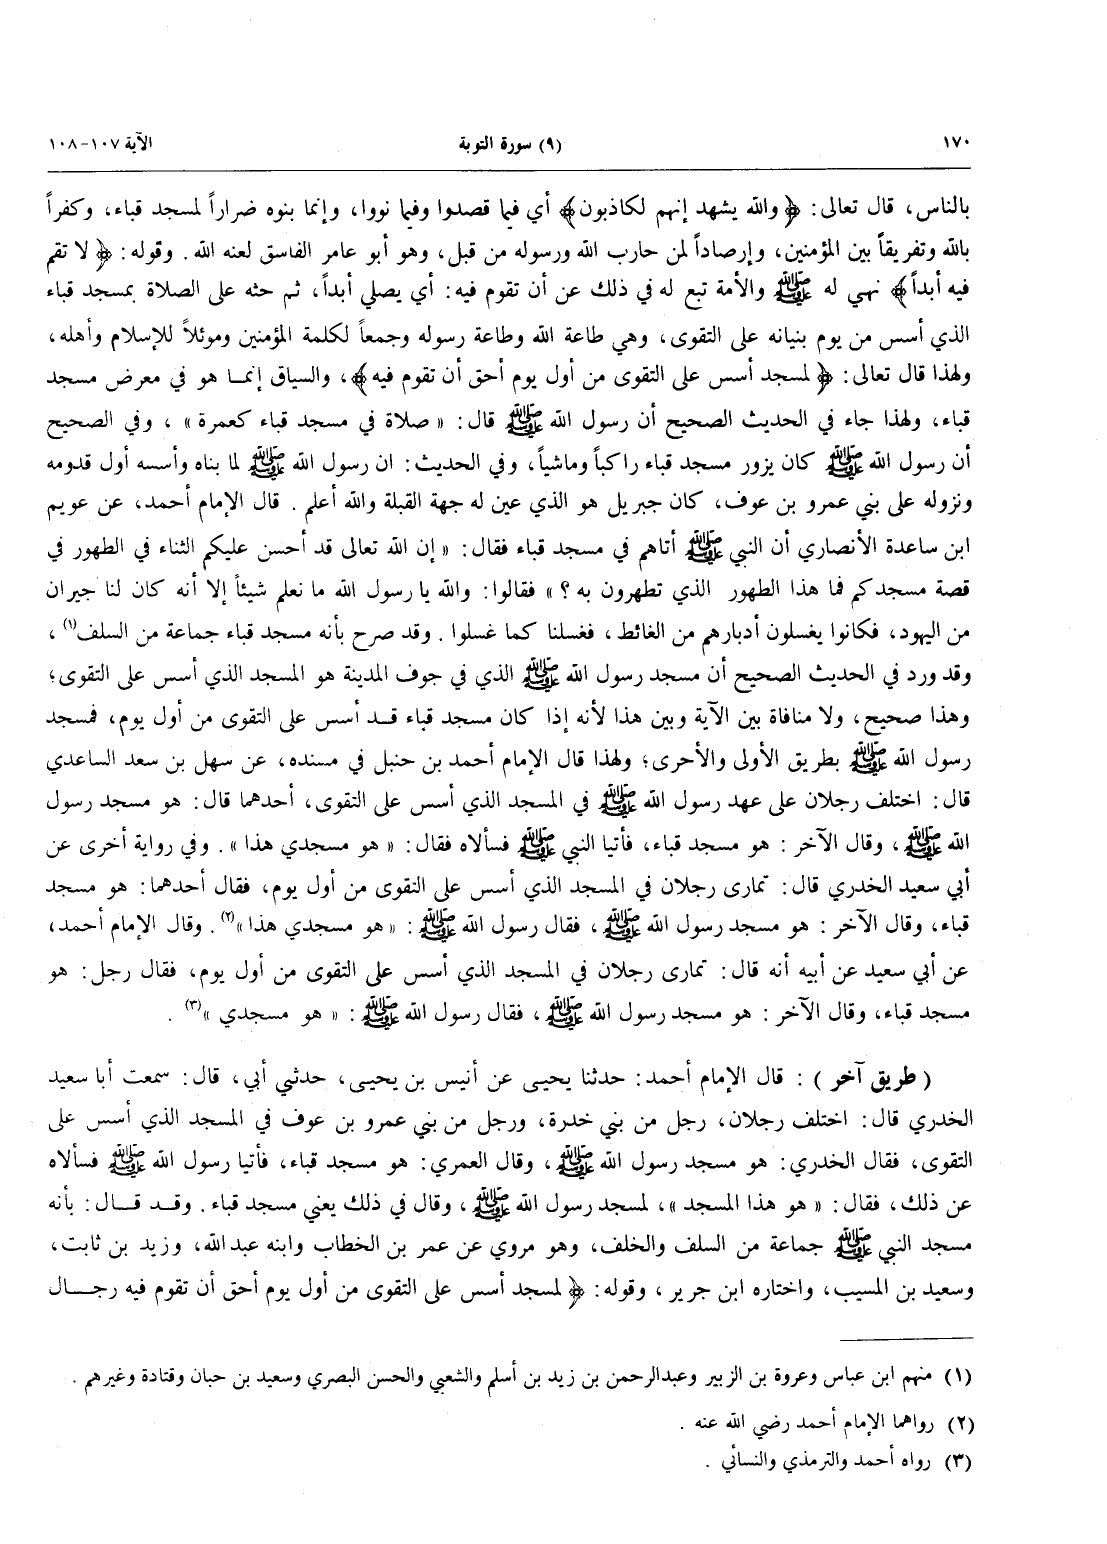 ١٧٠ (٩) سورة التوبة الآية ١٠٧-١٠٨
بالناس، قال تعالى: ﴿والله يشهد إنهم لكاذبون﴾ أي فيما قصدوا وفيما نووا، وإنما بنوه ضراراً لمسجد قباء، وكفراً
بالله وتفريقاً بين المؤمنين، وإرصاداً لمن حارب الله ورسوله من قبل، وهو أبو عامر الفاسق لعنه الله. وقوله: ﴿لا تقم
فيه أبداً﴾ نهي له ﷺ والأمة تبع له في ذلك عن أن تقوم فيه: أي يصلي أبداً، ثم حثه على الصلاة بمسجد قباء
الذي أسس من يوم بنيانه على التقوى، وهي طاعة الله وطاعة رسوله وجمعاً لكلمة المؤمنين وموئلاً للإسلام وأهله،
ولهذا قال تعالى: ﴿لمسجد أسس على التقوى من أول يوم أحق أن تقوم فيه﴾، والسياق إنمـا هو في معرض مسجد
قباء، ولهذا جاء في الحديث الصحيح أن رسول الله ﷺ قال: « صلاة في مسجد قباء كعمرة » ، وفي الصحيح
أن رسول الله ﷺ كان يزور مسجد قباء راكباً وماشياً، وفي الحديث: ان رسول الله ﷺ لما بناه وأسسه أول قدومه
ونزوله على بني عمرو بن عوف، كان جبريل هو الذي عين له جهة القبلة والله أعلم . قال الإمام أحمد، عن عويم
ابن ساعدة الأنصاري أن النبي ﷺ أتاهم في مسجد قباء فقال: « إن الله تعالى قد أحسن عليكم الثناء في الطهور في
قصة مسجدكم فما هذا الطهور الذي تطهرون به ؟ » فقالوا: والله يا رسول الله ما نعلم شيئاً إلا أنه كان لنا جيران
من اليهود، فكانوا يغسلون أدبارهم من الغائط، فغسلنا كما غسلوا . وقد صرح بأنه مسجد قباء جماعة من السلف(١) ،
وقد ورد في الحديث الصحيح أن مسجد رسول الله ﷺ الذي في جوف المدينة هو المسجد الذي أسس على التقوى؛
وهذا صحيح، ولا منافاة بين الآية وبين هذا لأنه إذا كان مسجد قباء قـد أسس على التقوى من أول يوم، فمسجد
رسول الله ﷺ بطريق الأولى والأحرى؛ ولهذا قال الإمام أحمد بن حنبل في مسنده، عن سهل بن سعد الساعدي
قال: اختلف رجلان على عهد رسول الله ﷺ في المسجد الذي أسس على التقوى، أحدهما قال: هو مسجد رسول
الله ﷺ، وقال الآخر : هو مسجد قباء، فأتيا النبي ﷺ فسألاه فقال: « هو مسجدي هذا » . وفي رواية أخرى عن
أبي سعيد الخدري قال: تمارى رجلان في المسجد الذي أسس على التقوى من أول يوم، فقال أحدهما: هو مسجد
قباء، وقال الآخر : هو مسجد رسول الله ﷺ ، فقال رسول الله ﷺ: « هو مسجدي هذا »(٢) . وقال الإمام أحمد،
عن أبي سعيد عن أبيه أنه قال: تمارى رجلان في المسجد الذي أسس على التقوى من أول يوم، فقال رجل: هو
مسجد قباء، وقال الآخر : هو مسجد رسول الله ﷺ ، فقال رسول الله ﷺ : « هو مسجدي »(٣) .
( طريق آخر ) : قال الإمام أحمد: حدثنا يحيى عن أنيس بن يحيى، حدثني أبي، قال: سمعت أبا سعيد
الخدري قال: اختلف رجلان، رجل من بني خدرة، ورجل من بني عمرو بن عوف في المسجد الذي أسس على
التقوى، فقال الخدري: هو مسجد رسول الله ﷺ، وقال العمري: هو مسجد قباء، فأتيا رسول الله ﷺ فسألاه
عن ذلك، فقال: « هو هذا المسجد »، لمسجد رسول الله ﷺ، وقال في ذلك يعني مسجد قباء . وقـد قـال: بأنه
مسجد النبي ﷺ جماعة من السلف والخلف، وهو مروي عن عمر بن الخطاب وابنه عبد الله، وزيد بن ثابت،
وسعيد بن المسيب، واختاره ابن جرير ، وقوله: ﴿لمسجد أسس على التقوى من أول يوم أحق أن تقوم فيه رجـال
(١) منهم ابن عباس وعروة بن الزبير وعبدالرحمن بن زيد بن أسلم والشعبي والحسن البصري وسعيد بن حبان وقتادة وغيرهم .
(٢) رواهما الإمام أحمد رضي الله عنه .
(٣) رواه أحمد والترمذي والنسائي .